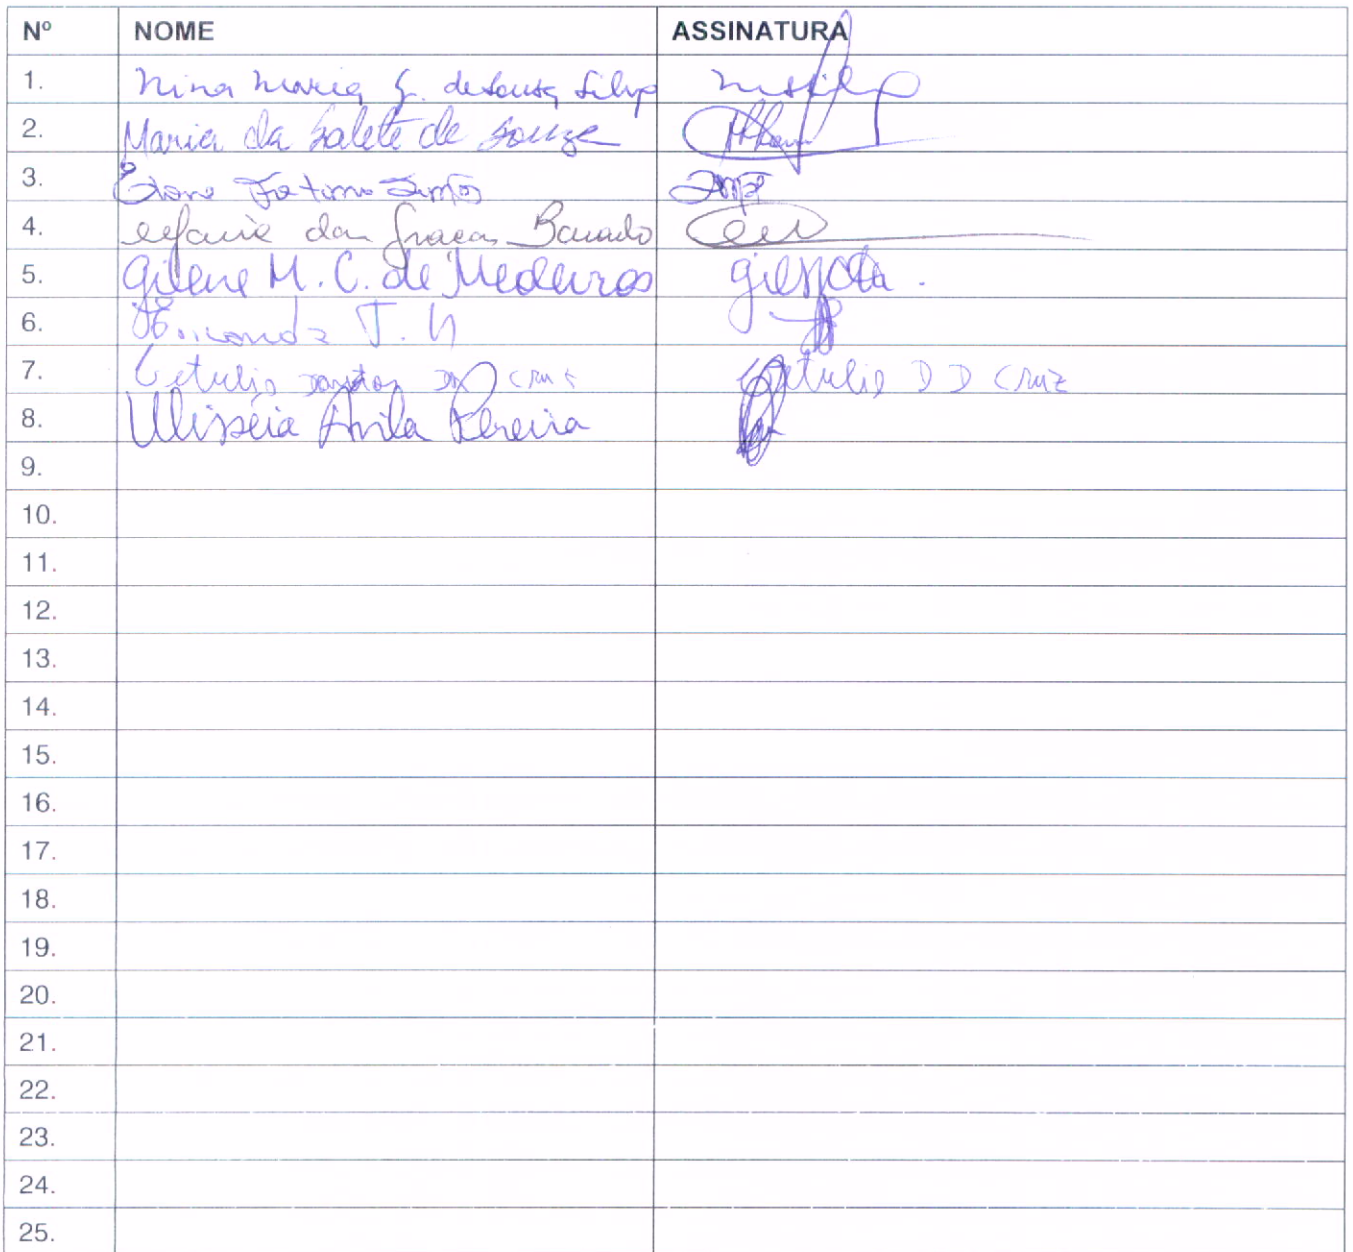 Nº NOME ASSINATURA
1. Nina Maria G. de Sousa Silva
2. Maria da Salete de Souza
3. Fatima Santos
4. das Graças
5. Gilene M. C. de Medeiros
6. T.
7. Getulio Dantas Cruz Getulio D D Cruz
8. Ulisséia Avila Pereira
9.
10.
11.
12.
13.
14.
15.
16.
17.
18.
19.
20.
21.
22.
23.
24.
25.